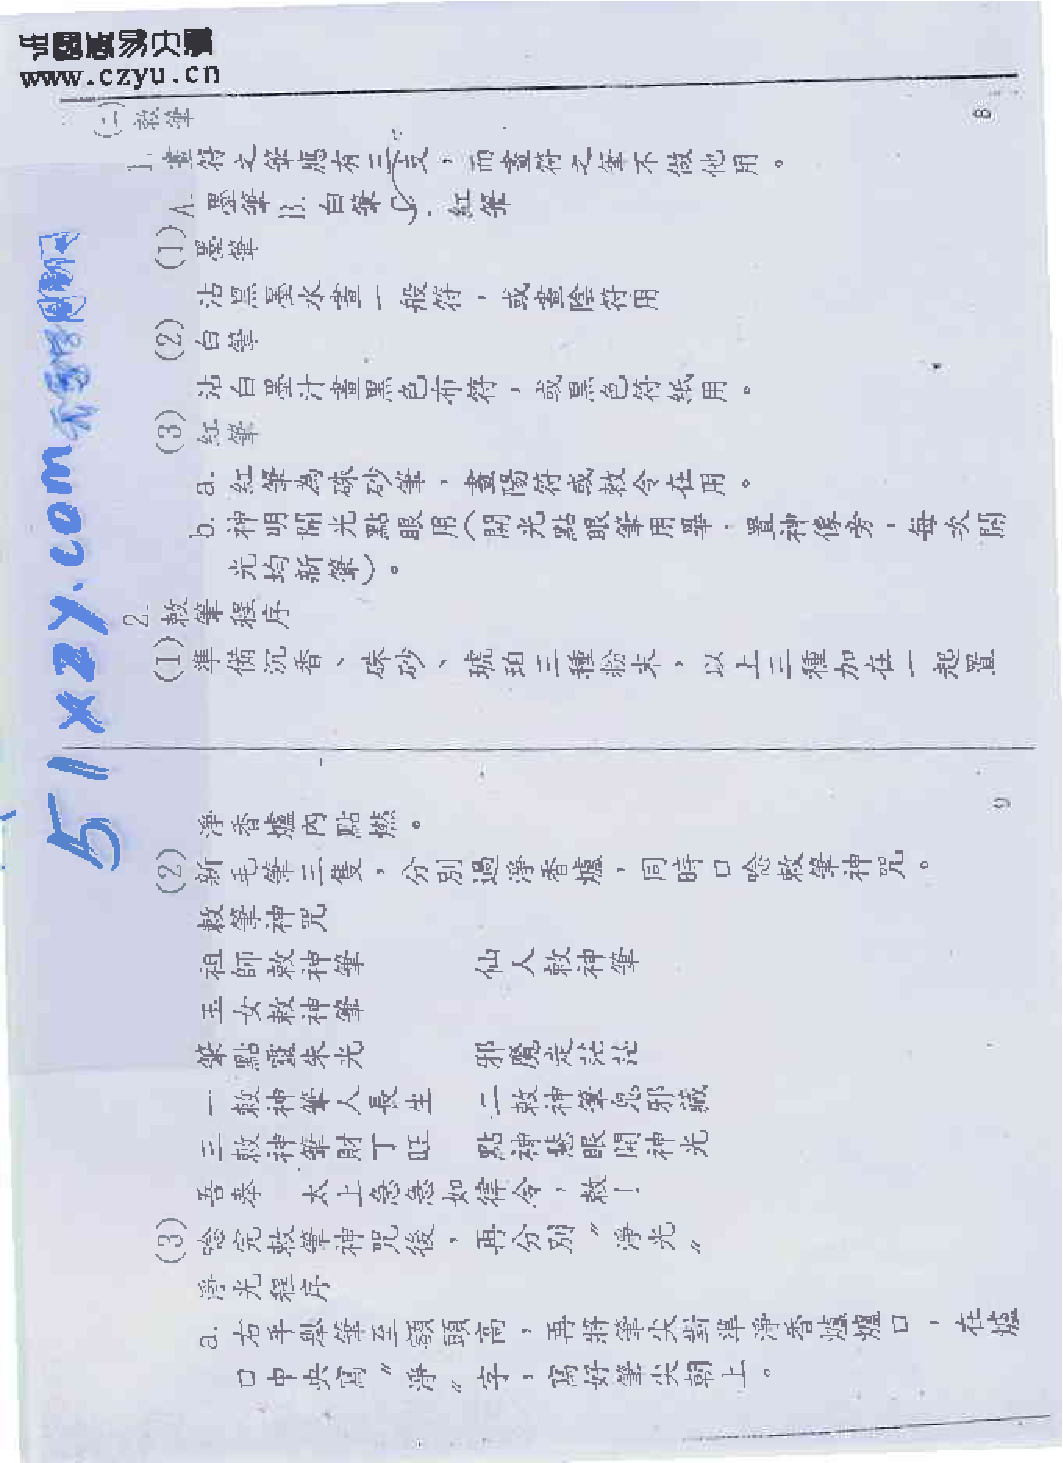 www.czyu.cn
51xzy.com
8
(二)敕筆
1. 畫符之筆應有三支，而畫符之筆不做他用。
A. 墨筆 B. 白筆 C. 紅筆
(1)墨筆
沾黑墨水畫一般符，或畫陰符用
(2)白筆
沾白墨汁畫黑色布符，或黑色符紙用。
(3)紅筆
a. 紅筆為硃砂筆，畫陽符或敕令在用。
b. 神明開光點眼用(開光點眼筆用畢，置神像旁，每次開
光均新筆)。
2. 敕筆程序
(1)準備沉香、硃砂、琥珀三種粉末，以上三種加在一起置
9
淨香爐內點燃。
(2)新毛筆三隻，分別過淨香爐，同時口唸敕筆神咒。
敕筆神咒
祖師敕神筆 仙人敕神筆
玉女敕神筆
筆點靈朱光 邪魔走茫茫
一敕神筆人長生 二敕神筆鬼邪藏
三敕神筆財丁旺 點神慧眼開神光
吾奉 太上急急如律令，敕！
(3)唸完敕筆神咒後，再分別〝淨光〞
淨光程序
a. 右手舉筆至額頭高，再將筆尖對準淨香爐爐口，在爐
口中央寫〝淨〞字，寫好筆尖朝上。